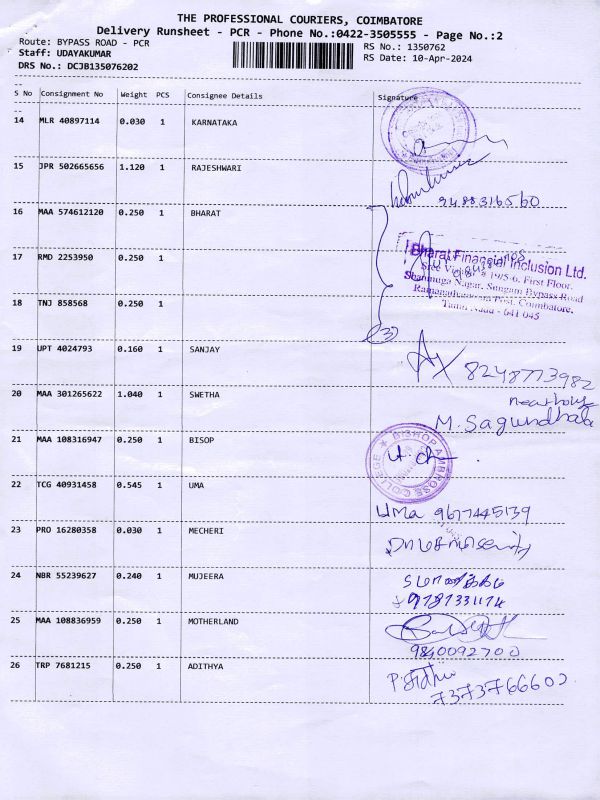 THE PROFESSIONAL COURIERS, COIMBATORE
Delivery Runsheet - PCR - Phone No.:0422-3505555 - Page No.:2
Route: BYPASS ROAD - PCR
RS No.: 1350762
Staff: UDAYAKUMAR
RS Date: 10-Apr-2024
DRS No.: DCJB135076202
S No Consignment No Weight PCS Consignee Details Signature
14 MLR 40897114 0.030 1 KARNATAKA
15 JPR 502665656 1.120 1 RAJESHWARI
9488316560
16 MAA 574612120 0.250 1 BHARAT
17 RMD 2253950 0.250 1
Bharat Financial Inclusion Ltd.
195-6, First Floor,
Shanmuga Nagar, Sungam Bypass Road
Ramanathapuram Post, Coimbatore,
Tamil Nadu - 641 045
18 TNJ 858568 0.250 1
(3)
19 UPT 4024793 0.160 1 SANJAY
8248773982
20 MAA 301265622 1.040 1 SWETHA
M. Sagundhala
21 MAA 108316947 0.250 1 BISOP
BISHOP AMBROSE COLLEGE
22 TCG 40931458 0.545 1 UMA
Uma 9677445139
23 PRO 16280358 0.030 1 MECHERI
24 NBR 55239627 0.240 1 MUJEERA
9787331174
25 MAA 108836959 0.250 1 MOTHERLAND
9840092700
26 TRP 7681215 0.250 1 ADITHYA